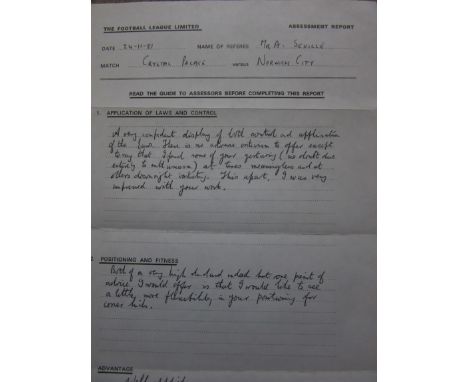 THE FOOTBALL LEAGUE LIMITED ASSESSMENT REPORT
DATE 24-11-81 NAME OF REFEREE Mr A. SEVILLE
MATCH CRYSTAL PALACE VERSUS NORWICH CITY
READ THE GUIDE TO ASSESSORS BEFORE COMPLETING THIS REPORT
1. APPLICATION OF LAWS AND CONTROL
A very confident display of both control and application
of the laws. There is no adverse criticism to offer except
to say that I found some of your gesturing (no doubt due
entirely to enthusiasm) at times meaningless and at
others downright . This apart, I was very
impressed with your work.
2 POSITIONING AND FITNESS
Both of a very high standard indeed but one point of
advice I would offer is that I would like to see
a little more flexibility in your positioning for
corner kicks.
ADVANTAGE
Well